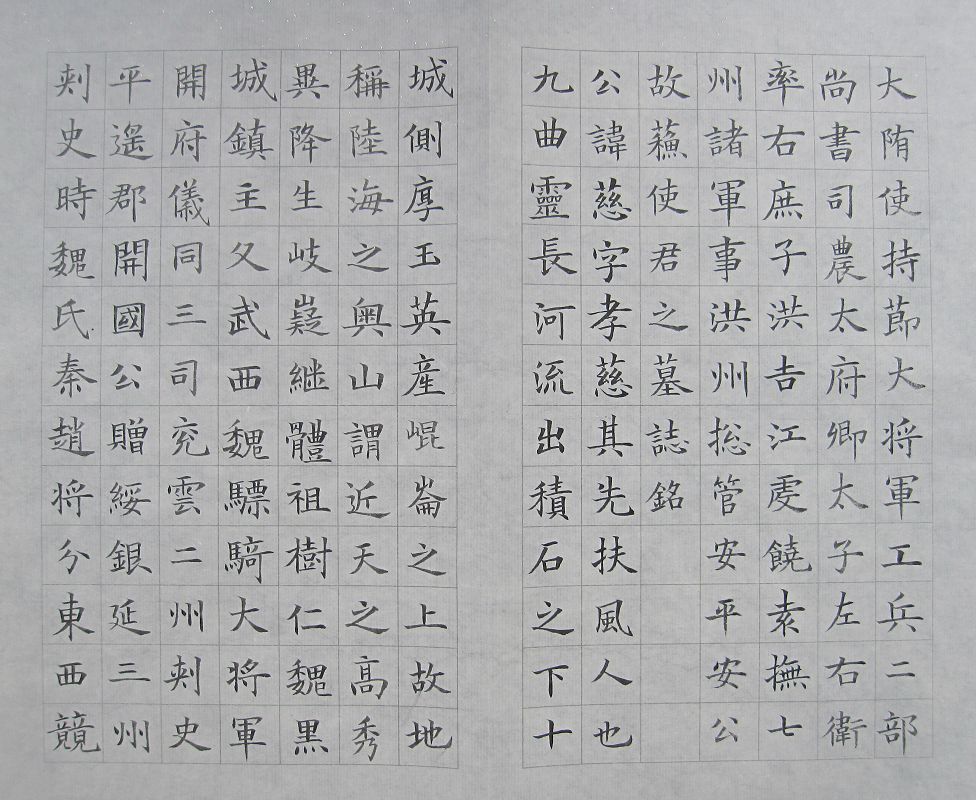 大隋使持莭大将軍工兵二部
尚書司農太府卿太子左右衛
率右庶子洪吉江虔饒素撫七
州諸軍事洪州捴管安平安公
故蘓使君之墓誌銘
公諱慈字孝慈其先扶風人也
九曲靈長河流出積石之下十
城側厚玉英産崐崙之上故地
稱陸海之奥山謂近天之高秀
異降生岐嶷継體祖樹仁魏黒
城鎮主父武西魏驃騎大将軍
開府儀同三司兖雲二州刾史
平遥郡開國公贈綏銀延三州
刾史時魏氏秦趙将分東西競